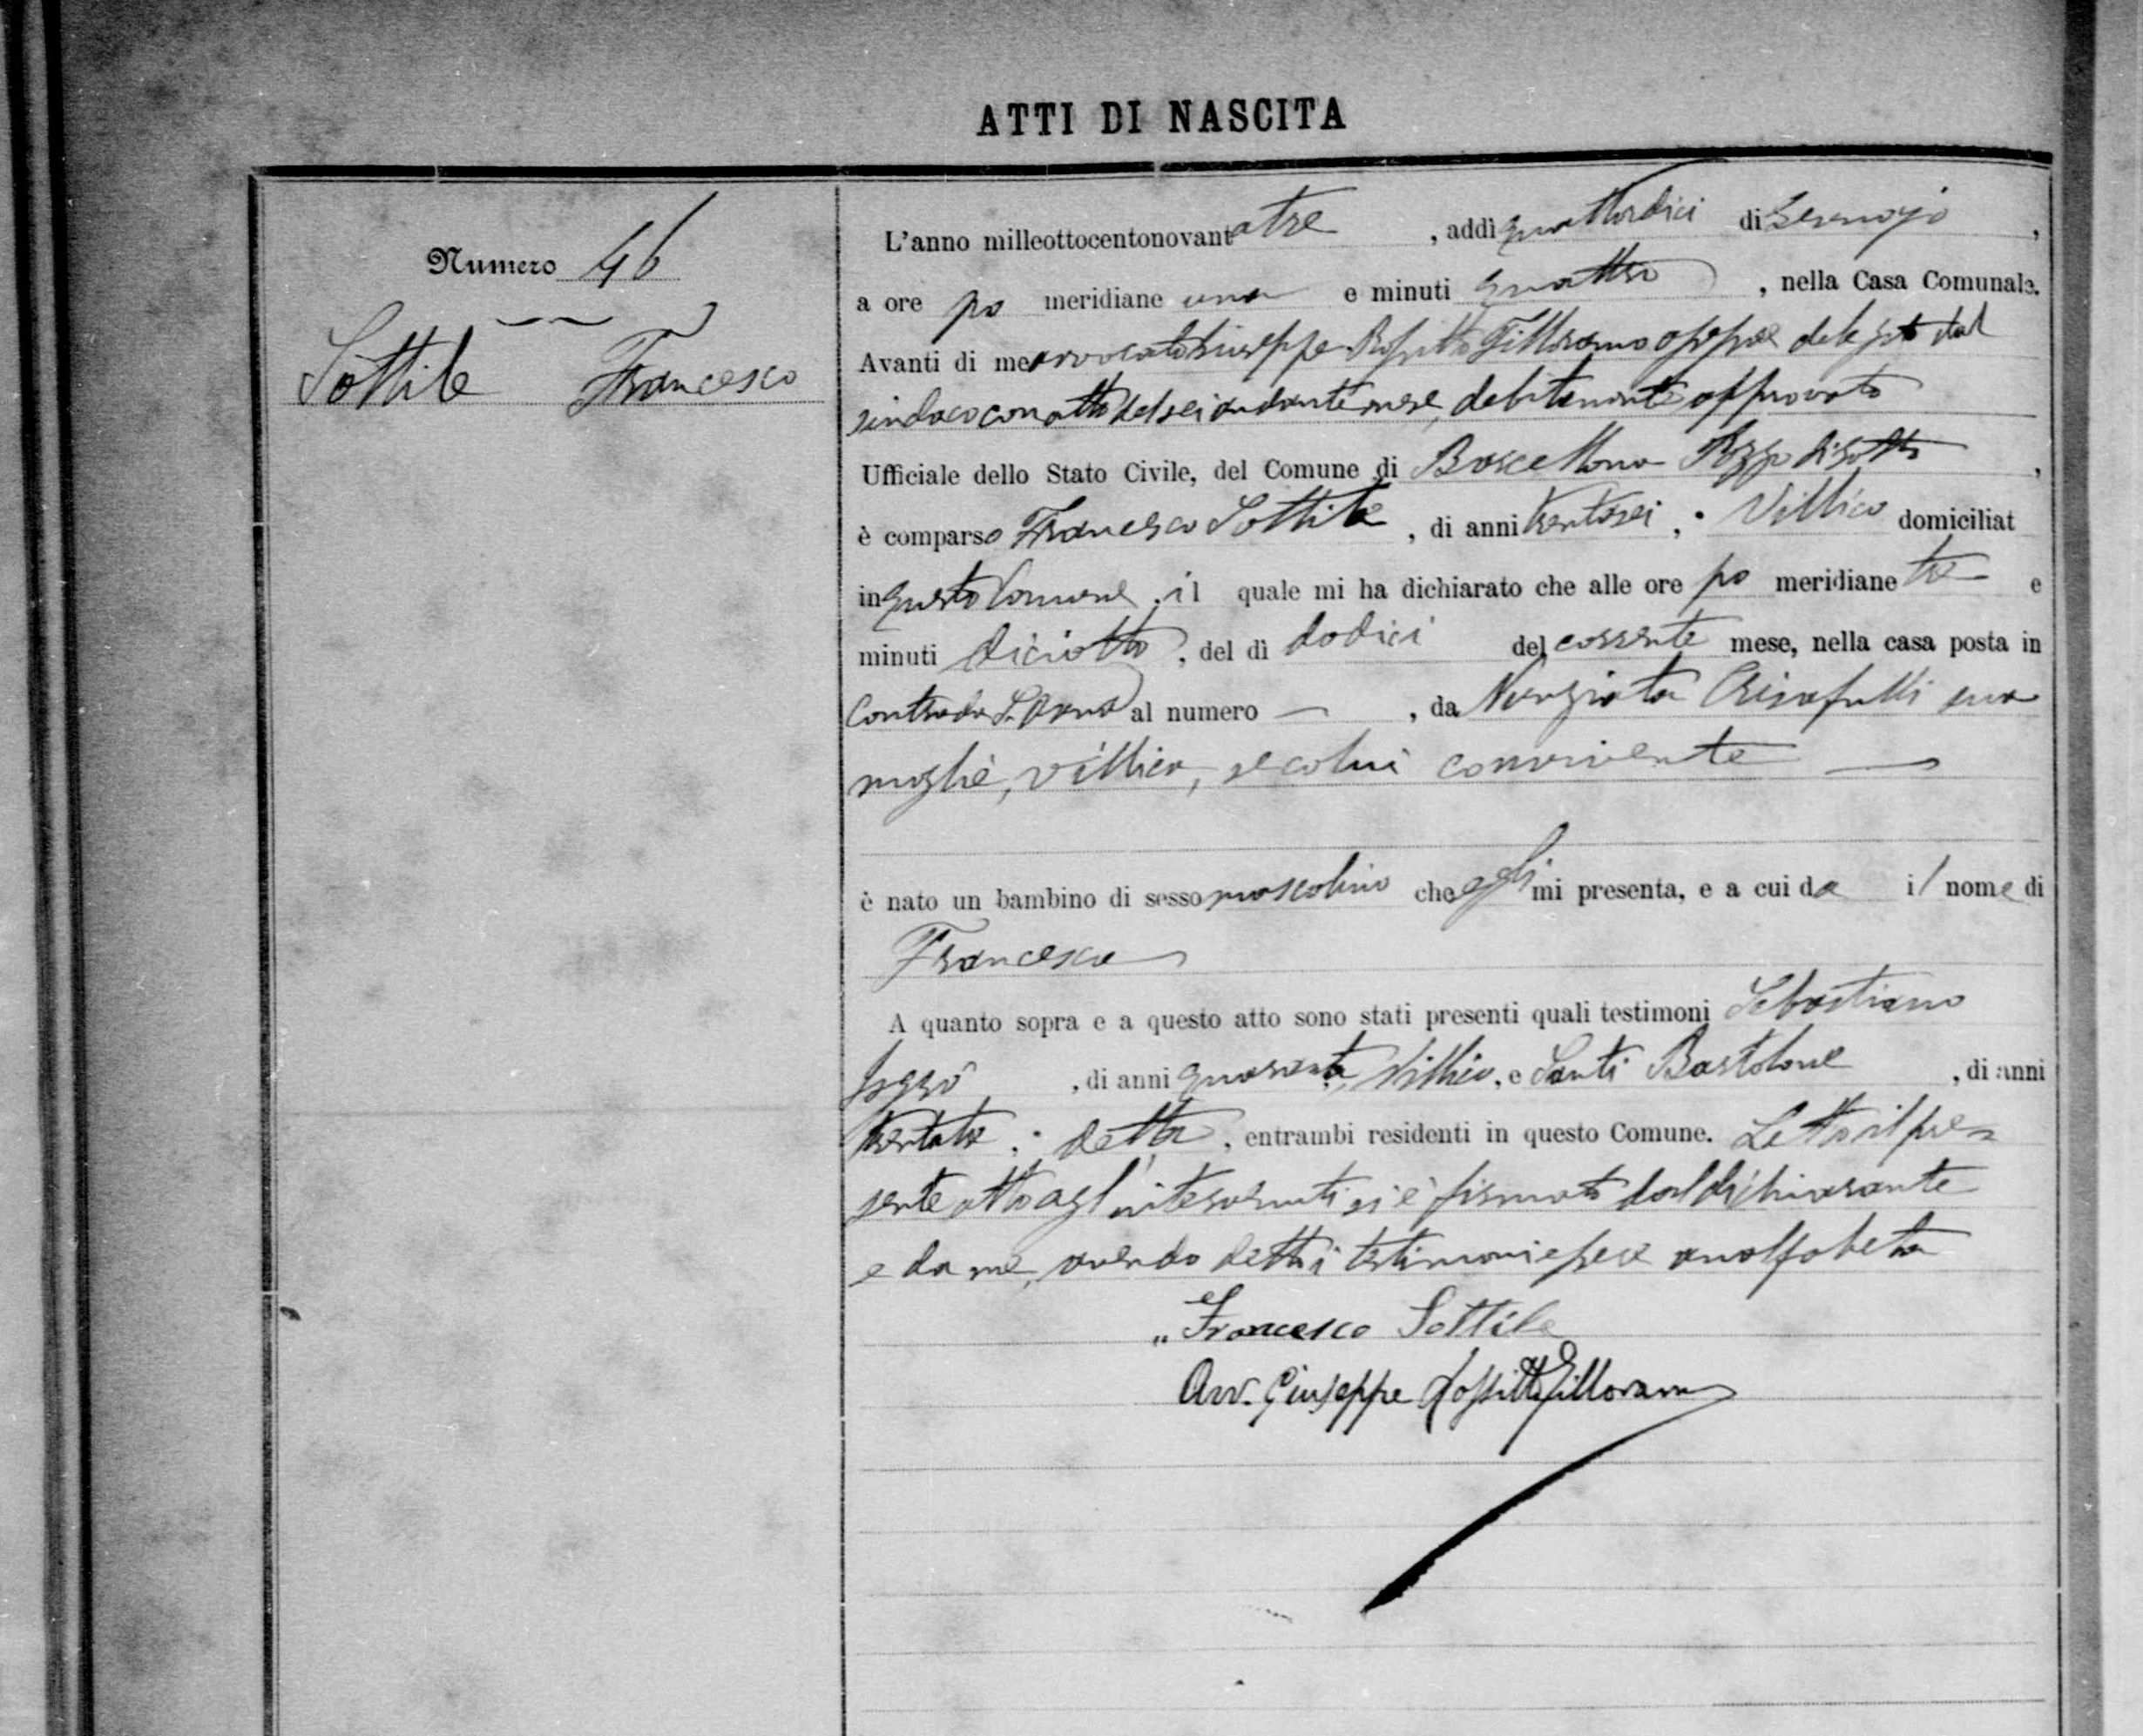 ATTI DI NASCITA
Numero 46
Sottile Francesco
L'anno milleottocentonovantatre, addì quattordici di Gennajo,
a ore po meridiane una e minuti quattro, nella Casa Comunale.
Avanti di me avvocato Giuseppe Rossitto Filloramo assessore delegato dal
sindaco con atto del sei andante mese, debitamente approvato
Ufficiale dello Stato Civile, del Comune di Barcellona Pozzo di Gotto,
è comparso Francesco Sottile, di anni trentasei, Villico domiciliat
in questo Comune, il quale mi ha dichiarato che alle ore po meridiane tre e
minuti diciotto, del dì dodici del corrente mese, nella casa posta in
Contrada al numero —, da Nunziata Crisafulli sua
moglie, villica, seco lui convivente —
è nato un bambino di sesso mascolino che egli mi presenta, e a cui da il nome di
Francesco
A quanto sopra e a questo atto sono stati presenti quali testimoni Sebastiano
, di anni quaranta, Villico, e Santi Bartolone, di anni
trentatre, detto, entrambi residenti in questo Comune. Letto il pre-
sente atto agl'intervenuti si è firmato dal dichiarante
e da me, avendo detto i testimoni essere analfabeta
„ Francesco Sottile
Avv. Giuseppe Rossitto Filloramo